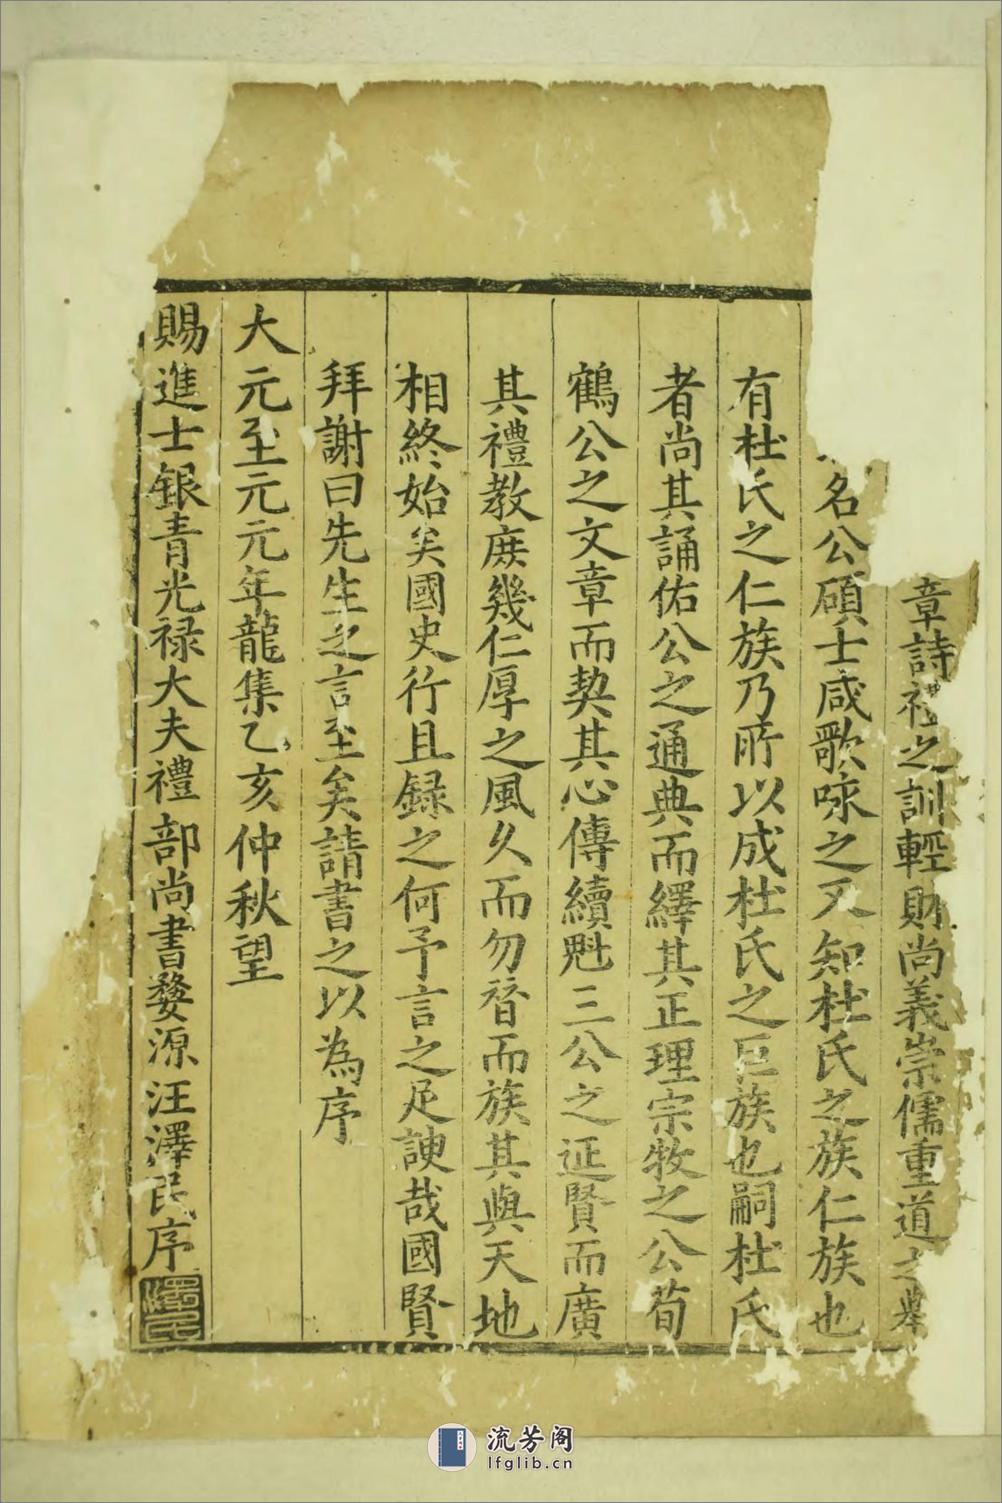 章詩禮之訓輕財尚義崇儒重道之舉
名公碩士咸歌咏之又知杜氏之族仁族也
有杜氏之仁族乃所以成杜氏之巨族也嗣杜氏
者尚其誦佑公之通典而繹其正理宗牧之公荀
鶴公之文章而契其心傳續魁三公之延賢而廣
其禮教庻幾仁厚之風久而勿替而族其與天地
相終始矣國史行且録之何予言之足諛哉國賢
拜謝曰先生之言至矣請書之以為序
大元至元元年龍集乙亥仲秋望
賜進士銀青光禄大夫禮部尚書婺源汪澤民序
澤民
流芳阁
lfglib.cn